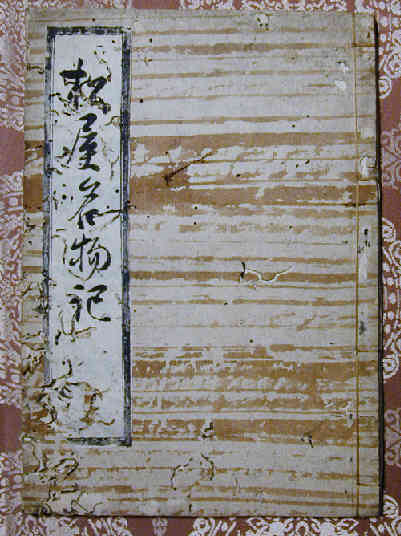 松屋名物記